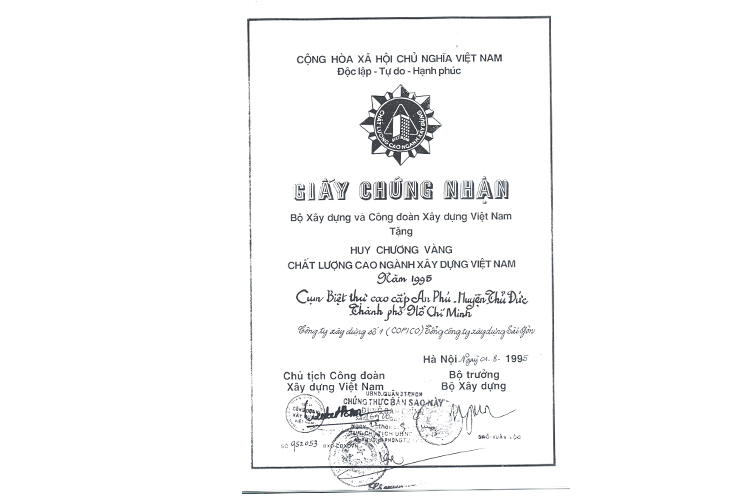 CỘNG HÒA XÃ HỘI CHỦ NGHĨA VIỆT NAM
Độc lập - Tự do - Hạnh phúc
CHẤT LƯỢNG CAO NGÀNH XÂY DỰNG
GIẤY CHỨNG NHẬN
Bộ Xây dựng và Công đoàn Xây dựng Việt Nam
Tặng
HUY CHƯƠNG VÀNG
CHẤT LƯỢNG CAO NGÀNH XÂY DỰNG VIỆT NAM
Năm 1995
Cụm Biệt thự cao cấp An Phú - Huyện Thủ Đức
Thành phố Hồ Chí Minh
Công ty xây dựng số 1 (COFICO) Tổng công ty xây dựng Sài Gòn
Hà Nội, Ngày 01-8-1995
Chủ tịch Công đoàn
Xây dựng Việt Nam
Bộ trưởng
Bộ Xây dựng
UBND.QUẬN 3 TPHCM
CHỨNG THỰC BẢN SAO NÀY
CÔNG ĐOÀN
XÂY DỰNG
VIỆT NAM
SỐ 952053